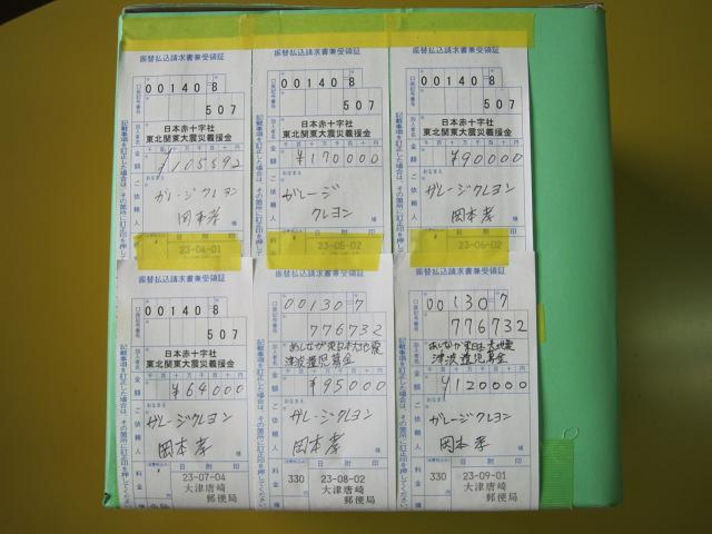 振替払込請求書兼受領証
00140 8
507
日本赤十字社
東北関東大震災義援金
¥105592
ガレージクレヨン
岡本孝
様
日附印
23-04-01
振替払込請求書兼受領証
00140 8
507
日本赤十字社
東北関東大震災義援金
¥170000
ガレージ
クレヨン
様
日附印
23-05-02
振替払込請求書兼受領証
00140 8
507
日本赤十字社
東北関東大震災義援金
¥90000
ガレージクレヨン
岡本孝
様
日附印
23-06-02
振替払込請求書兼受領証
00140 8
507
日本赤十字社
東北関東大震災義援金
¥64000
ガレージクレヨン
岡本孝
様
日附印
23-07-04
大津唐崎
郵便局
振替払込請求書兼受領証
00130 7
776732
あしなが東日本大地震
津波遺児募金
¥95000
ガレージクレヨン
岡本孝
様
日附印
330
23-08-02
大津唐崎
郵便局
振替払込請求書兼受領証
00130 7
776732
あしなが東日本大地震
津波遺児募金
¥120000
ガレージクレヨン
岡本孝
様
日附印
330
23-09-01
大津唐崎
郵便局